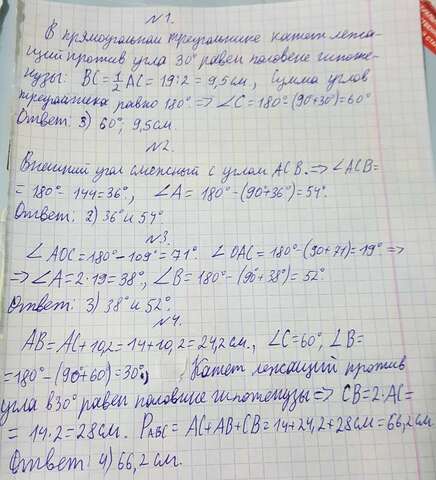 №1.
В прямоугольном треугольнике катет лежа-
щий против угла 30° равен половине гипоте-
нузы: BC = 1/2 AC = 19:2 = 9,5см, Сумма углов
треугольника равно 180° => ∠C = 180°-(90°+30°)=60°
Ответ: 3) 60°; 9,5см.
№2.
Внешний угол смежный с углом ACB. => ∠ACB=
= 180°-144=36°, ∠A = 180°-(90+36°)=54°.
Ответ: 2) 36° и 54°
№3.
∠AOC=180°-109°=71° ∠OAC=180°-(90+71)=19° =>
=> ∠A=2·19=38°, ∠B=180°-(90°+38°)=52°.
Ответ: 3) 38° и 52°.
№4.
AB=AC+10,2=14+10,2=24,2см., ∠C=60°, ∠B=
=180°-(90°+60)=30°, Катет лежащий против
угла в 30° равен половине гипотенузы => CB=2·AC=
= 14·2=28см. PABC = AC+AB+CB=14+24,2+28см=66,2см
Ответ: 4) 66,2см.